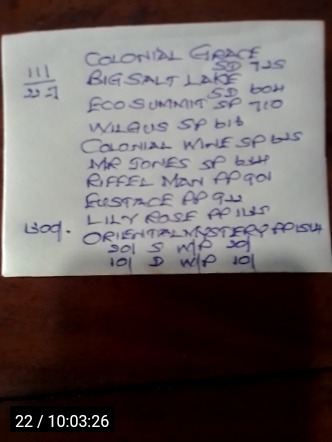 COLONIAL GRACE
SD 725
111
227
BIG SALT LAKE
SD 604
ECO SUMMIT SP 710
WILGUS SP 613
COLONIAL WINE SP 625
MR JONES SP 634
RIFFEL MAN PP 901
EUSTACE PP 922
LILY ROSE PP 1125
ORIENTAL MYSTERY PP 1514
201 S W/P 201
101 D W/P 101
22 / 10:03:26